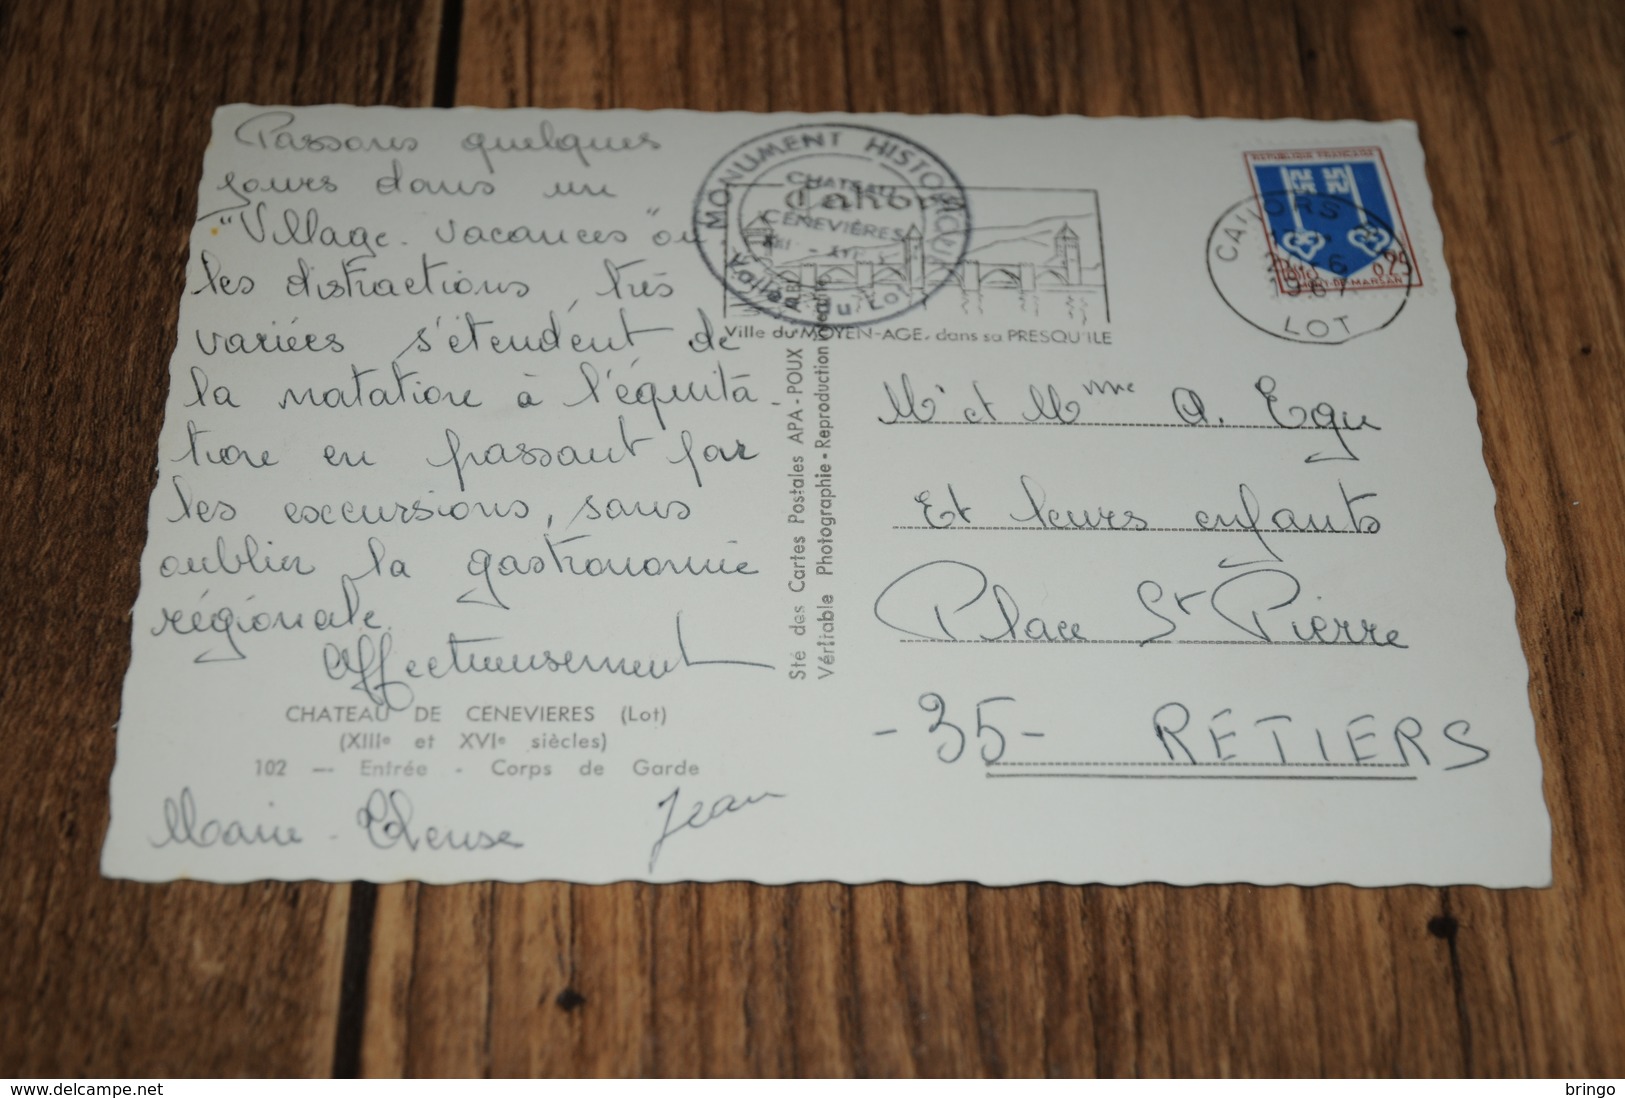 Passons quelques
jours dans un
"Village-vacances" où
les distractions, très
variées s'étendent de
la natation à l'équita-
tion en passant par
les excursions, sans
oublier la gastronomie
régionale.
Affectueusement
CHATEAU DE CENEVIERES (Lot)
(XIIIe et XVIe siècles)
102 — Entrée - Corps de Garde
Marie-Thérèse Jean
Sté des Cartes Postales APA-POUX
Véritable Photographie - Reproduction
MONUMENT HISTORIQUE
CHATEAU
CÉNEVIÈRES
Vallée du Lot
Cahors
Ville du MOYEN-AGE, dans sa PRESQU'ILE
CAHORS
1967
LOT
REPUBLIQUE FRANÇAISE
0,25
MONT-DE-MARSAN
Mr et Mme A. Egu
Et leurs enfants
Place St Pierre
-35- RETIERS
www.delcampe.net
bringo